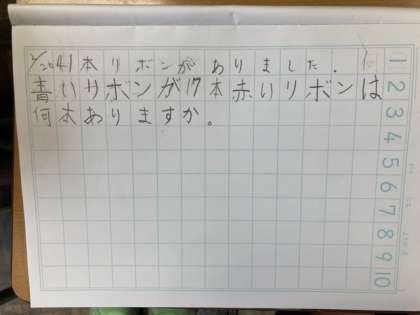 2/20 41本リボンがありました.
青いリボンが17本赤いリボンは
何本ありますか。
1
2
3
4
5
6
7
8
9
10